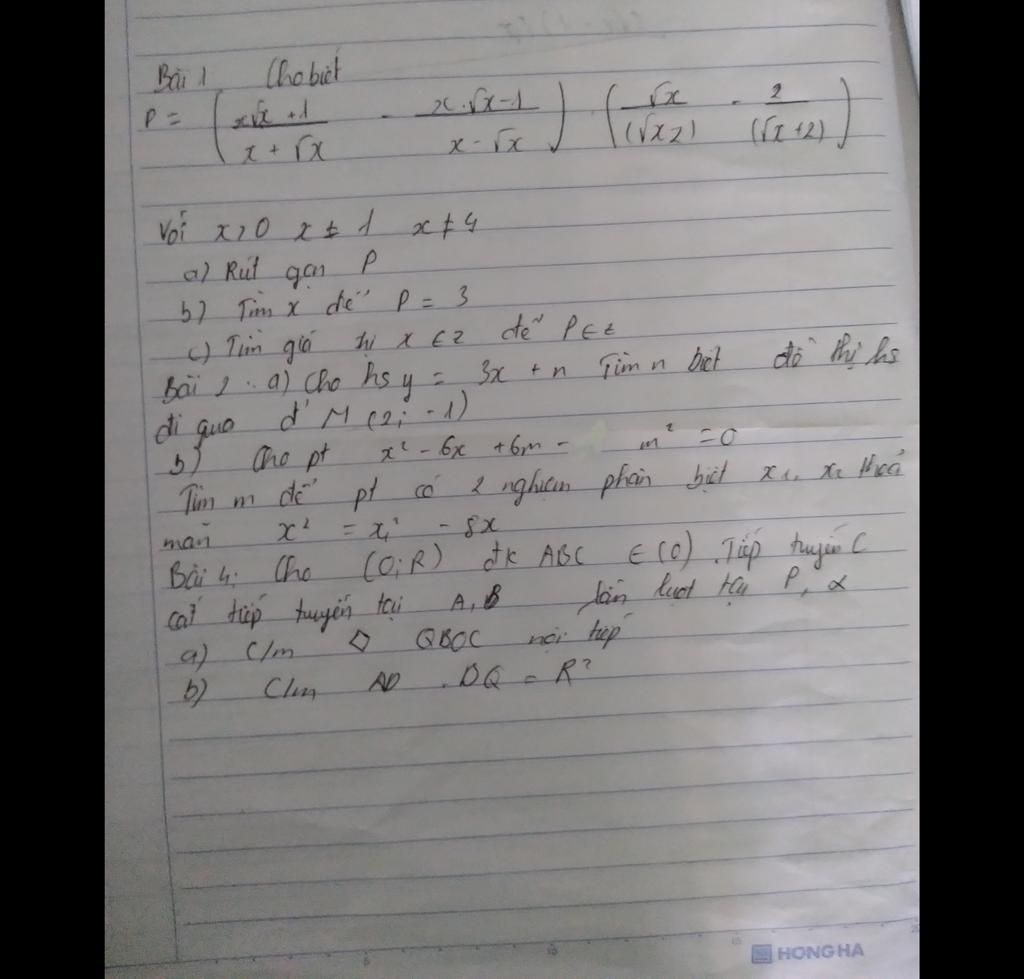 Bài 1 Cho biết
P = ( x√x +1 / x + √x - x.√x-1 / x - √x ) . ( √x / (√x 2) - 2 / (√x +2) )
Với x>0 x ≠ 1 x ≠ 4
a) Rút gọn P
b) Tìm x để P = 3
c) Tìm giá trị x ∈ Z để P ∈ Z
Bài 2 : a) Cho hs y = 3x + n Tìm n biết đồ thị hs
đi qua đ' M (2; -1)
b) Cho pt x² - 6x + 6m - m² = 0
Tìm m để pt có 2 nghiệm phân biệt x₁, x₂ thoả
mãn x² = x₁² - 8x
Bài 4: Cho (O;R) đk ABC ∈ (O). Tiếp tuyến C
cắt tiếp tuyến tại A, B lần lượt tại P,
a) C/m ◇ QBOC nội tiếp
b) C/m AD . DQ = R²
HONG HA